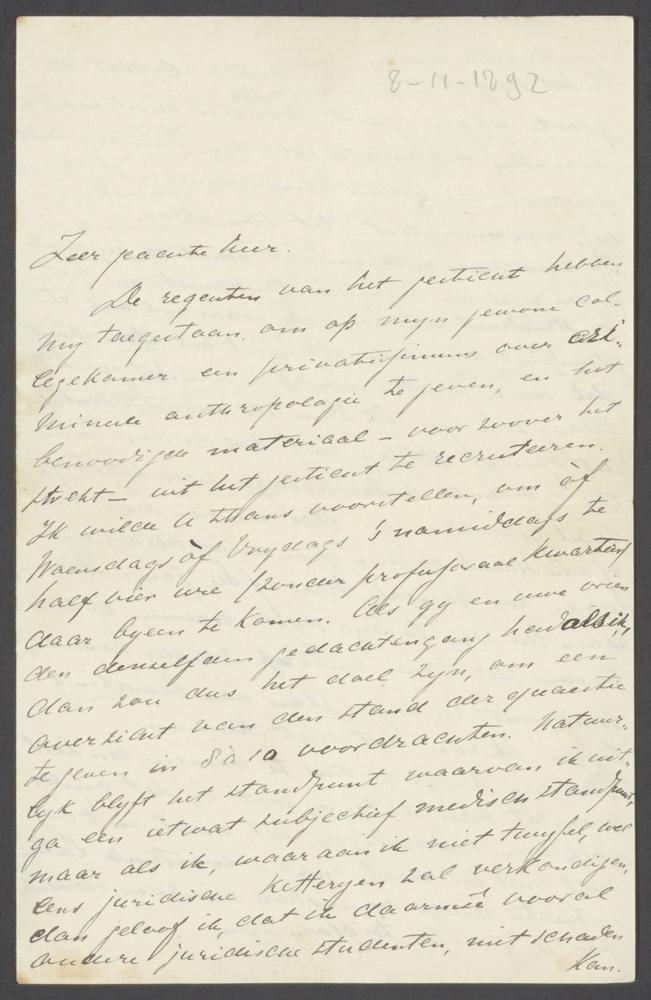 8-11-1892
Zeer geachte heer.
De regenten van het gesticht hebben
my toegestaan, om op myn gewone col-
legekamer een privatissimum over cri-
mineele anthropologie te geven, en het
benoodigde materiaal – voor zoover het
strekt – uit het gesticht te recruteeren.
Ik wilde U thans voorstellen, om òf
Woensdags òf Vrydags 's namiddags te
half vier ure (zonder professoraal kwartier)
daar byeen te komen. Als gy en uwe vrien
den denzelfden gedachtengang had als ik,
dan zou dus het doel zyn, om een
overzicht van den stand der quaestie
te geven in 8 à 10 voordrachten. Natuur-
lyk blyft het standpunt waarvan ik uit-
ga een ietwat subjectief medisch standpunt,
maar als ik, waaraan ik niet twyfel, wel
eens juridische ketteryen zal verkondigen,
dan geloof ik, dat ik daarmeê vooral
oudere juridische studenten, niet schaden
kan.